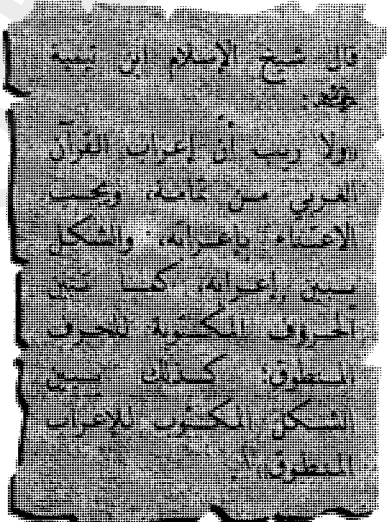 قال شيخ الإسلام ابن تيمية
رحمه الله:
«ولا ريب أنّ إعراب القرآن
العربي من تمامه، ويجب
الاعتناء بإعرابه، والشكل
يبين إعرابه، كما تبين
الحروف المكتوبة للحرف
المنطوق، كذلك يبين
الشكل المكتوب للإعراب
المنطوق».